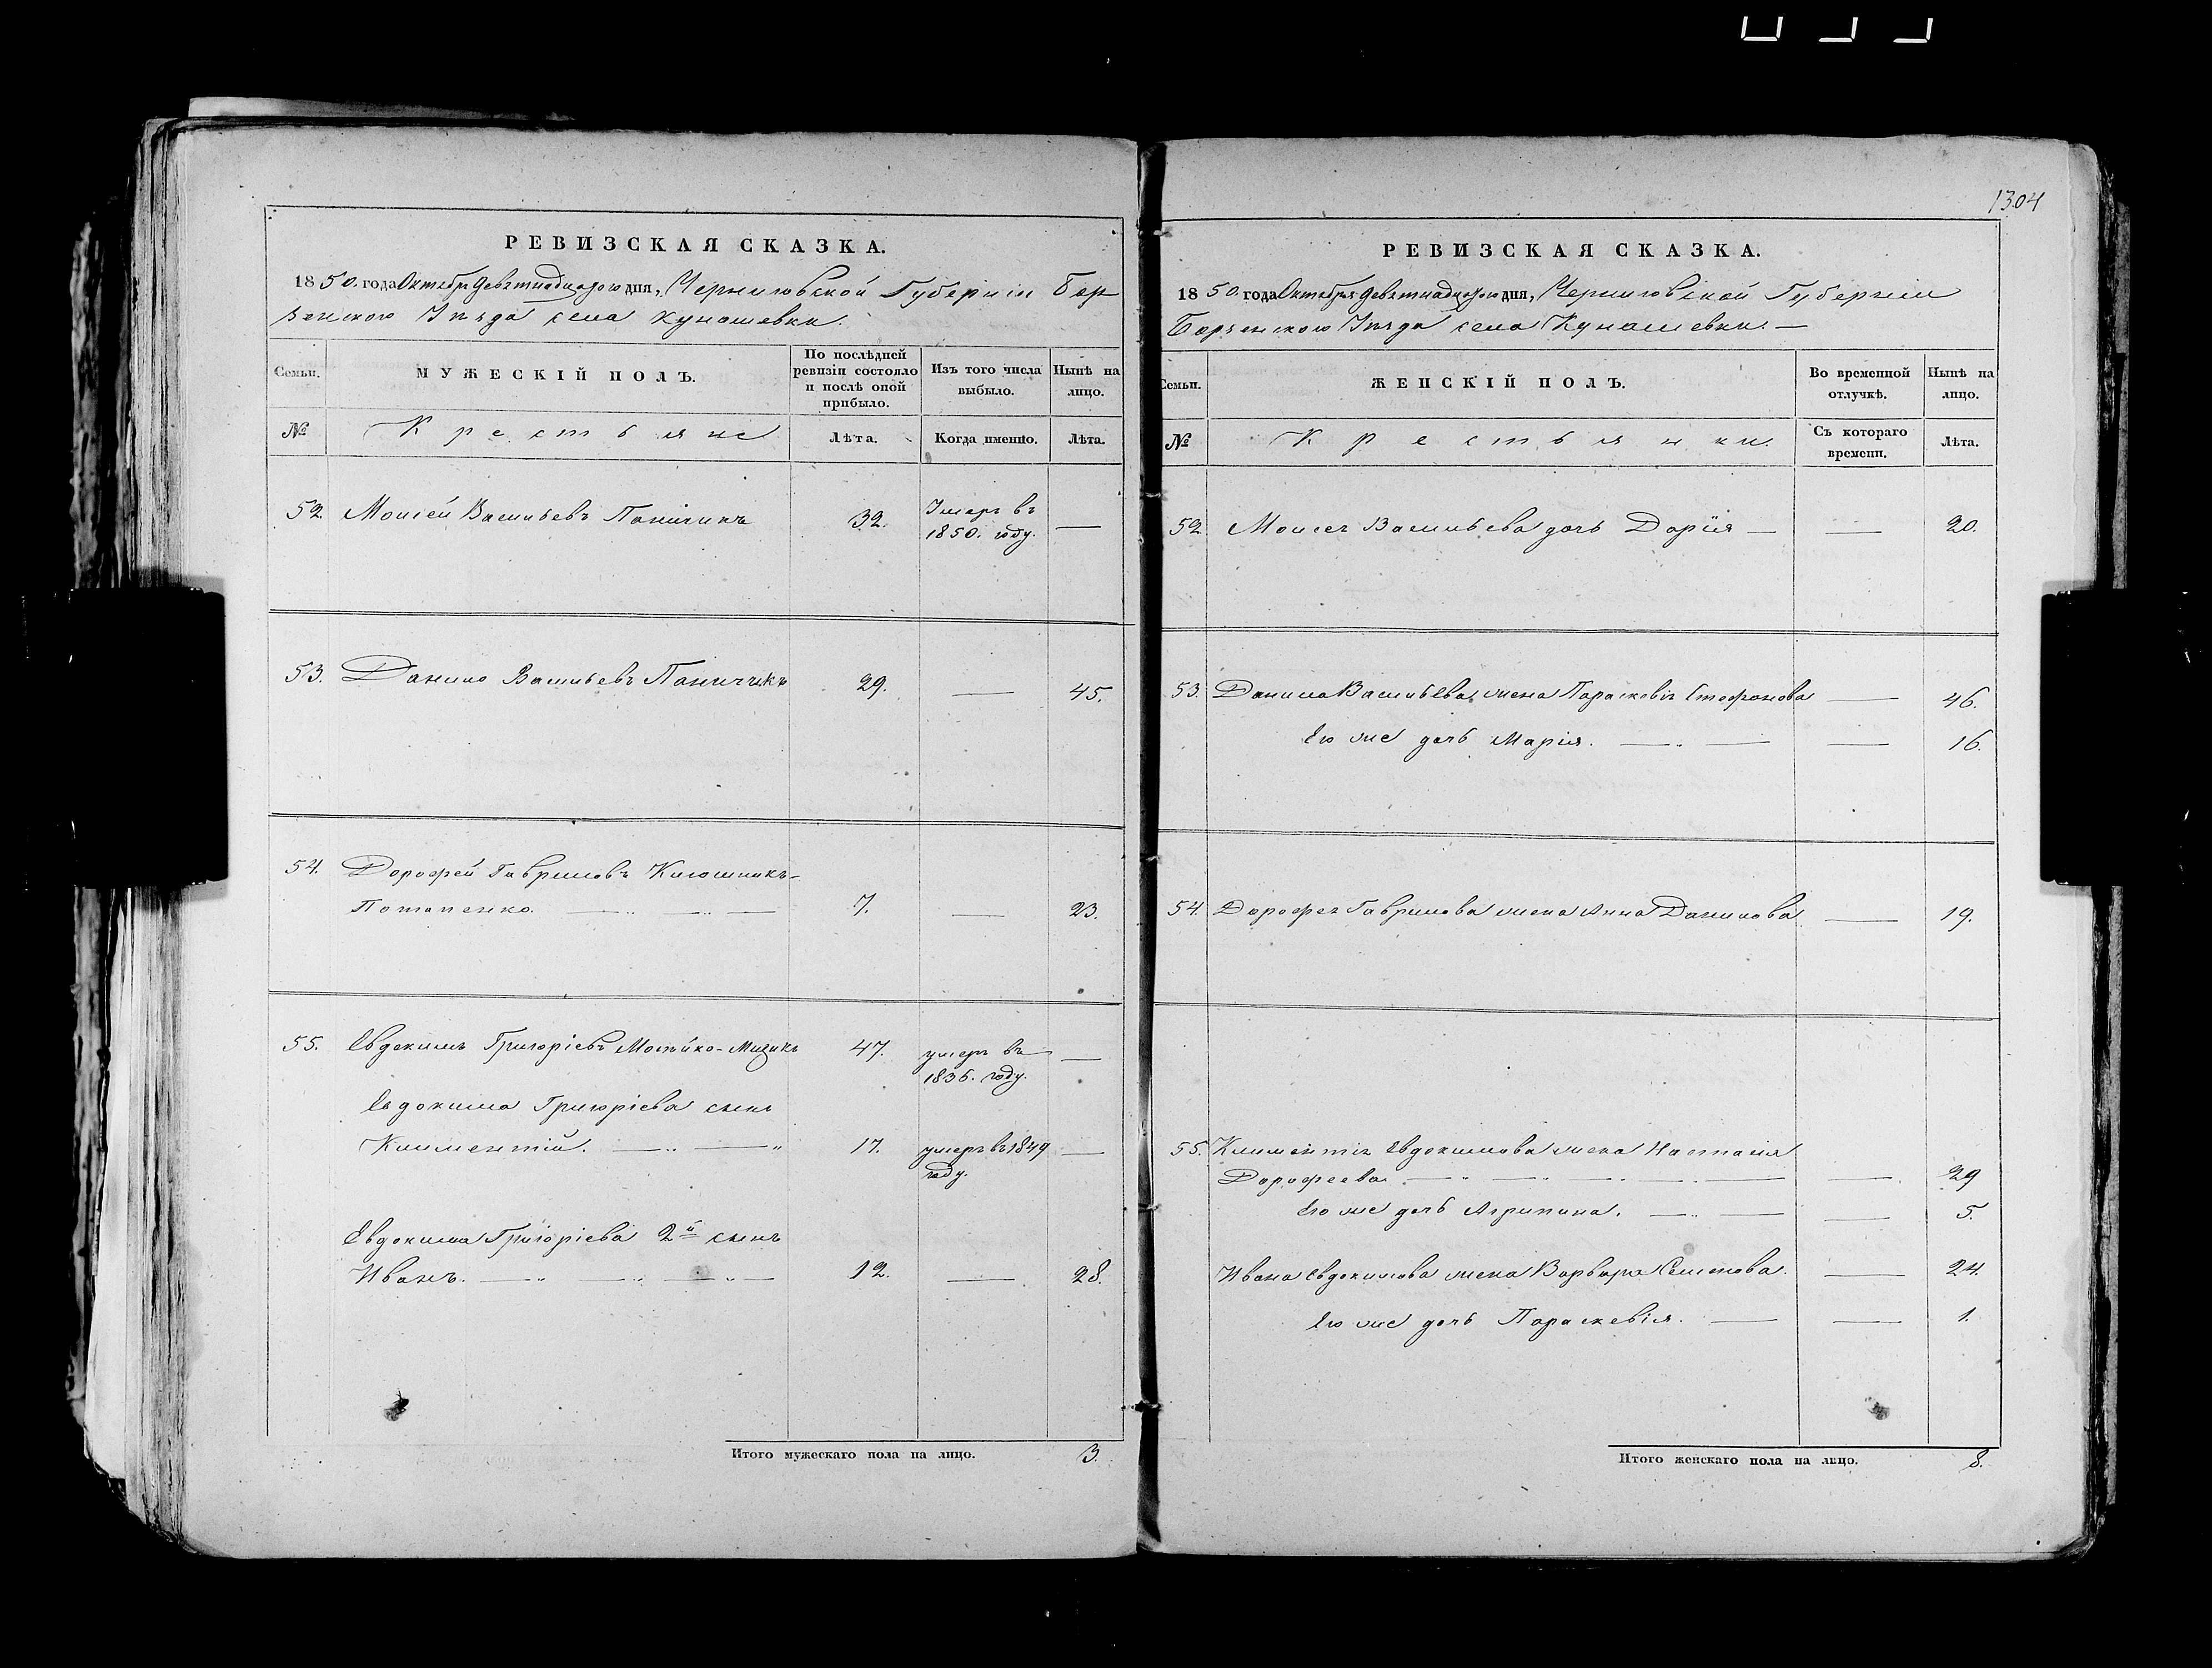 РЕВИЗСКАЯ СКАЗКА.
1850. года Октября девятнадцатого дня, Черниговской Губернiи Бор
зенского Уѣзда села Кунашевки.
Семьи.
МУЖЕСКІЙ ПОЛЪ.
По послѣдней ревизіи состояло и послѣ оной прибыло.
Изъ того числа выбыло.
Нынѣ на лицо.
№
Крестьяне
Лѣта.
Когда именно.
Лѣта.
52. Моисей Васильевъ Паничикъ 32. Умеръ въ 1850. году. —
53. Данило Васильевъ Паничикъ 29. — 45.
54. Дорофей Гавриловъ Клюшникъ-
Потапенко. 7. — 23.
55. Евдокимъ Григоріевъ Мозикъ 47. умеръ въ 1836. году. —
Евдокима Григоріева сынъ
Климентій. 17. умеръ въ 1849 году. —
Евдокима Григоріева 2й сынъ
Иванъ. 12. — 28.
Итого мужескаго пола на лицо. 3.
1304
РЕВИЗСКАЯ СКАЗКА.
1850 года Октября девятнадцатого дня, Черниговской Губерніи
Борзенского Уѣзда села Кунашевки. —
Семьи.
ЖЕНСКІЙ ПОЛЪ.
Во временной отлучкѣ.
Нынѣ на лицо.
№
Крестьянки.
Съ котораго времени.
Лѣта.
52. Моисея Васильева дочь Дарія — — 20.
53. Данила Васильева жена Параскевія Стефанова — 46.
Его же дочь Марія. — 16.
54. Дорофея Гаврилова жена Анна Данилова — 19.
55. Климентія Евдокимова жена Настасія
Дорофеева. — 29
Его же дочь Агрипина. — 5.
Ивана Евдокимова жена Варвара Семенова. — 24.
Его же дочь Параскевія. — 1.
Итого женскаго пола на лицо. 8.